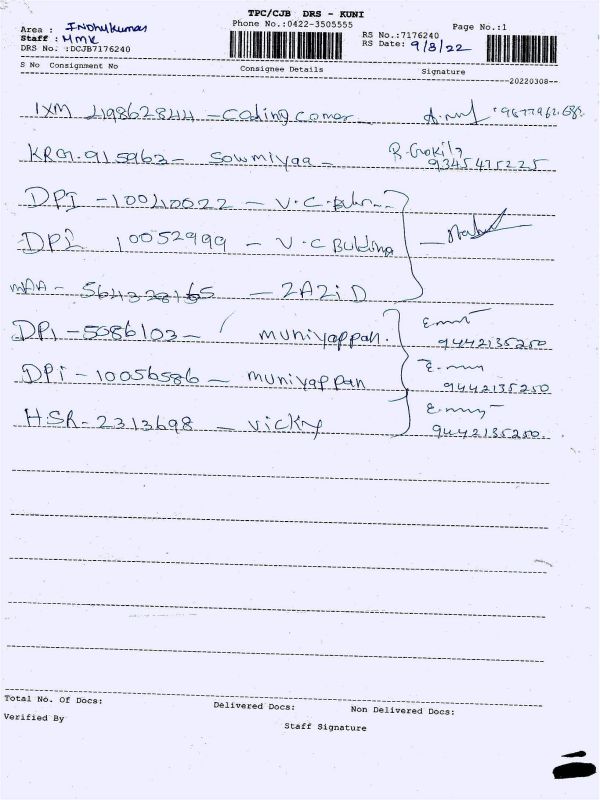 TPC/CJB DRS - KUNI
Phone No.:0422-3505555
Page No.:1
Area : Indhykumar
Staff : MMK
DRS No. :DCJB7176240
RS No.:7176240
RS Date: 9/3/22
S No Consignment No Consignee Details Signature
--20220308--
IXM 49862844 - Coding Comer
KRG. 915963 - Sowmiyaa - R. Gokila
9345475225
DPI - 10040022 - V.C.
DPI 10052999 - V.C Bulding
MAA - - ZAZID
DPi - 5086103 - muniyappan.
9442135250
DPi - 10056586 - muniyappan
9442135250
HSR - 2313698 - Vicky
9442135250.
Total No. Of Docs: Delivered Docs: Non Delivered Docs:
Verified By
Staff Signature